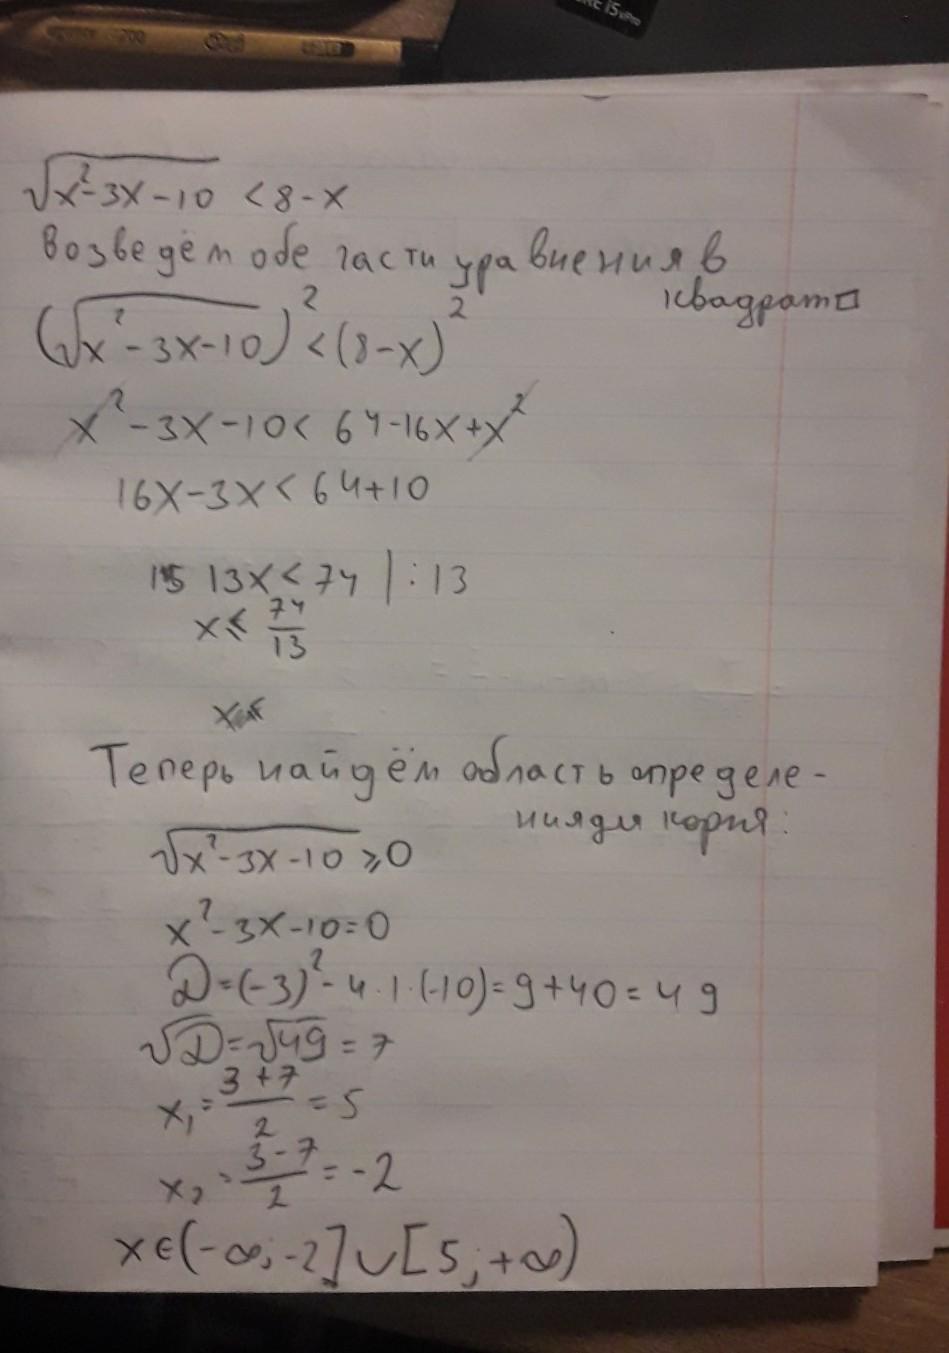 √x²-3x-10 < 8-x
Возведём обе части уравнения в
квадрат
(√x²-3x-10)² < (8-x)²
x²-3x-10 < 64-16x+x²
16x-3x < 64+10
13x < 74 | : 13
x ⩽ 74/13
x
Теперь найдём область определе-
ния для корня:
√x²-3x-10 ⩾ 0
x²-3x-10=0
D=(-3)²-4·1·(-10)=9+40=49
√D=√49=7
x₁=(3+7)/2=5
x₂=(3-7)/2=-2
x∈(-∞;-2]∪[5;+∞)